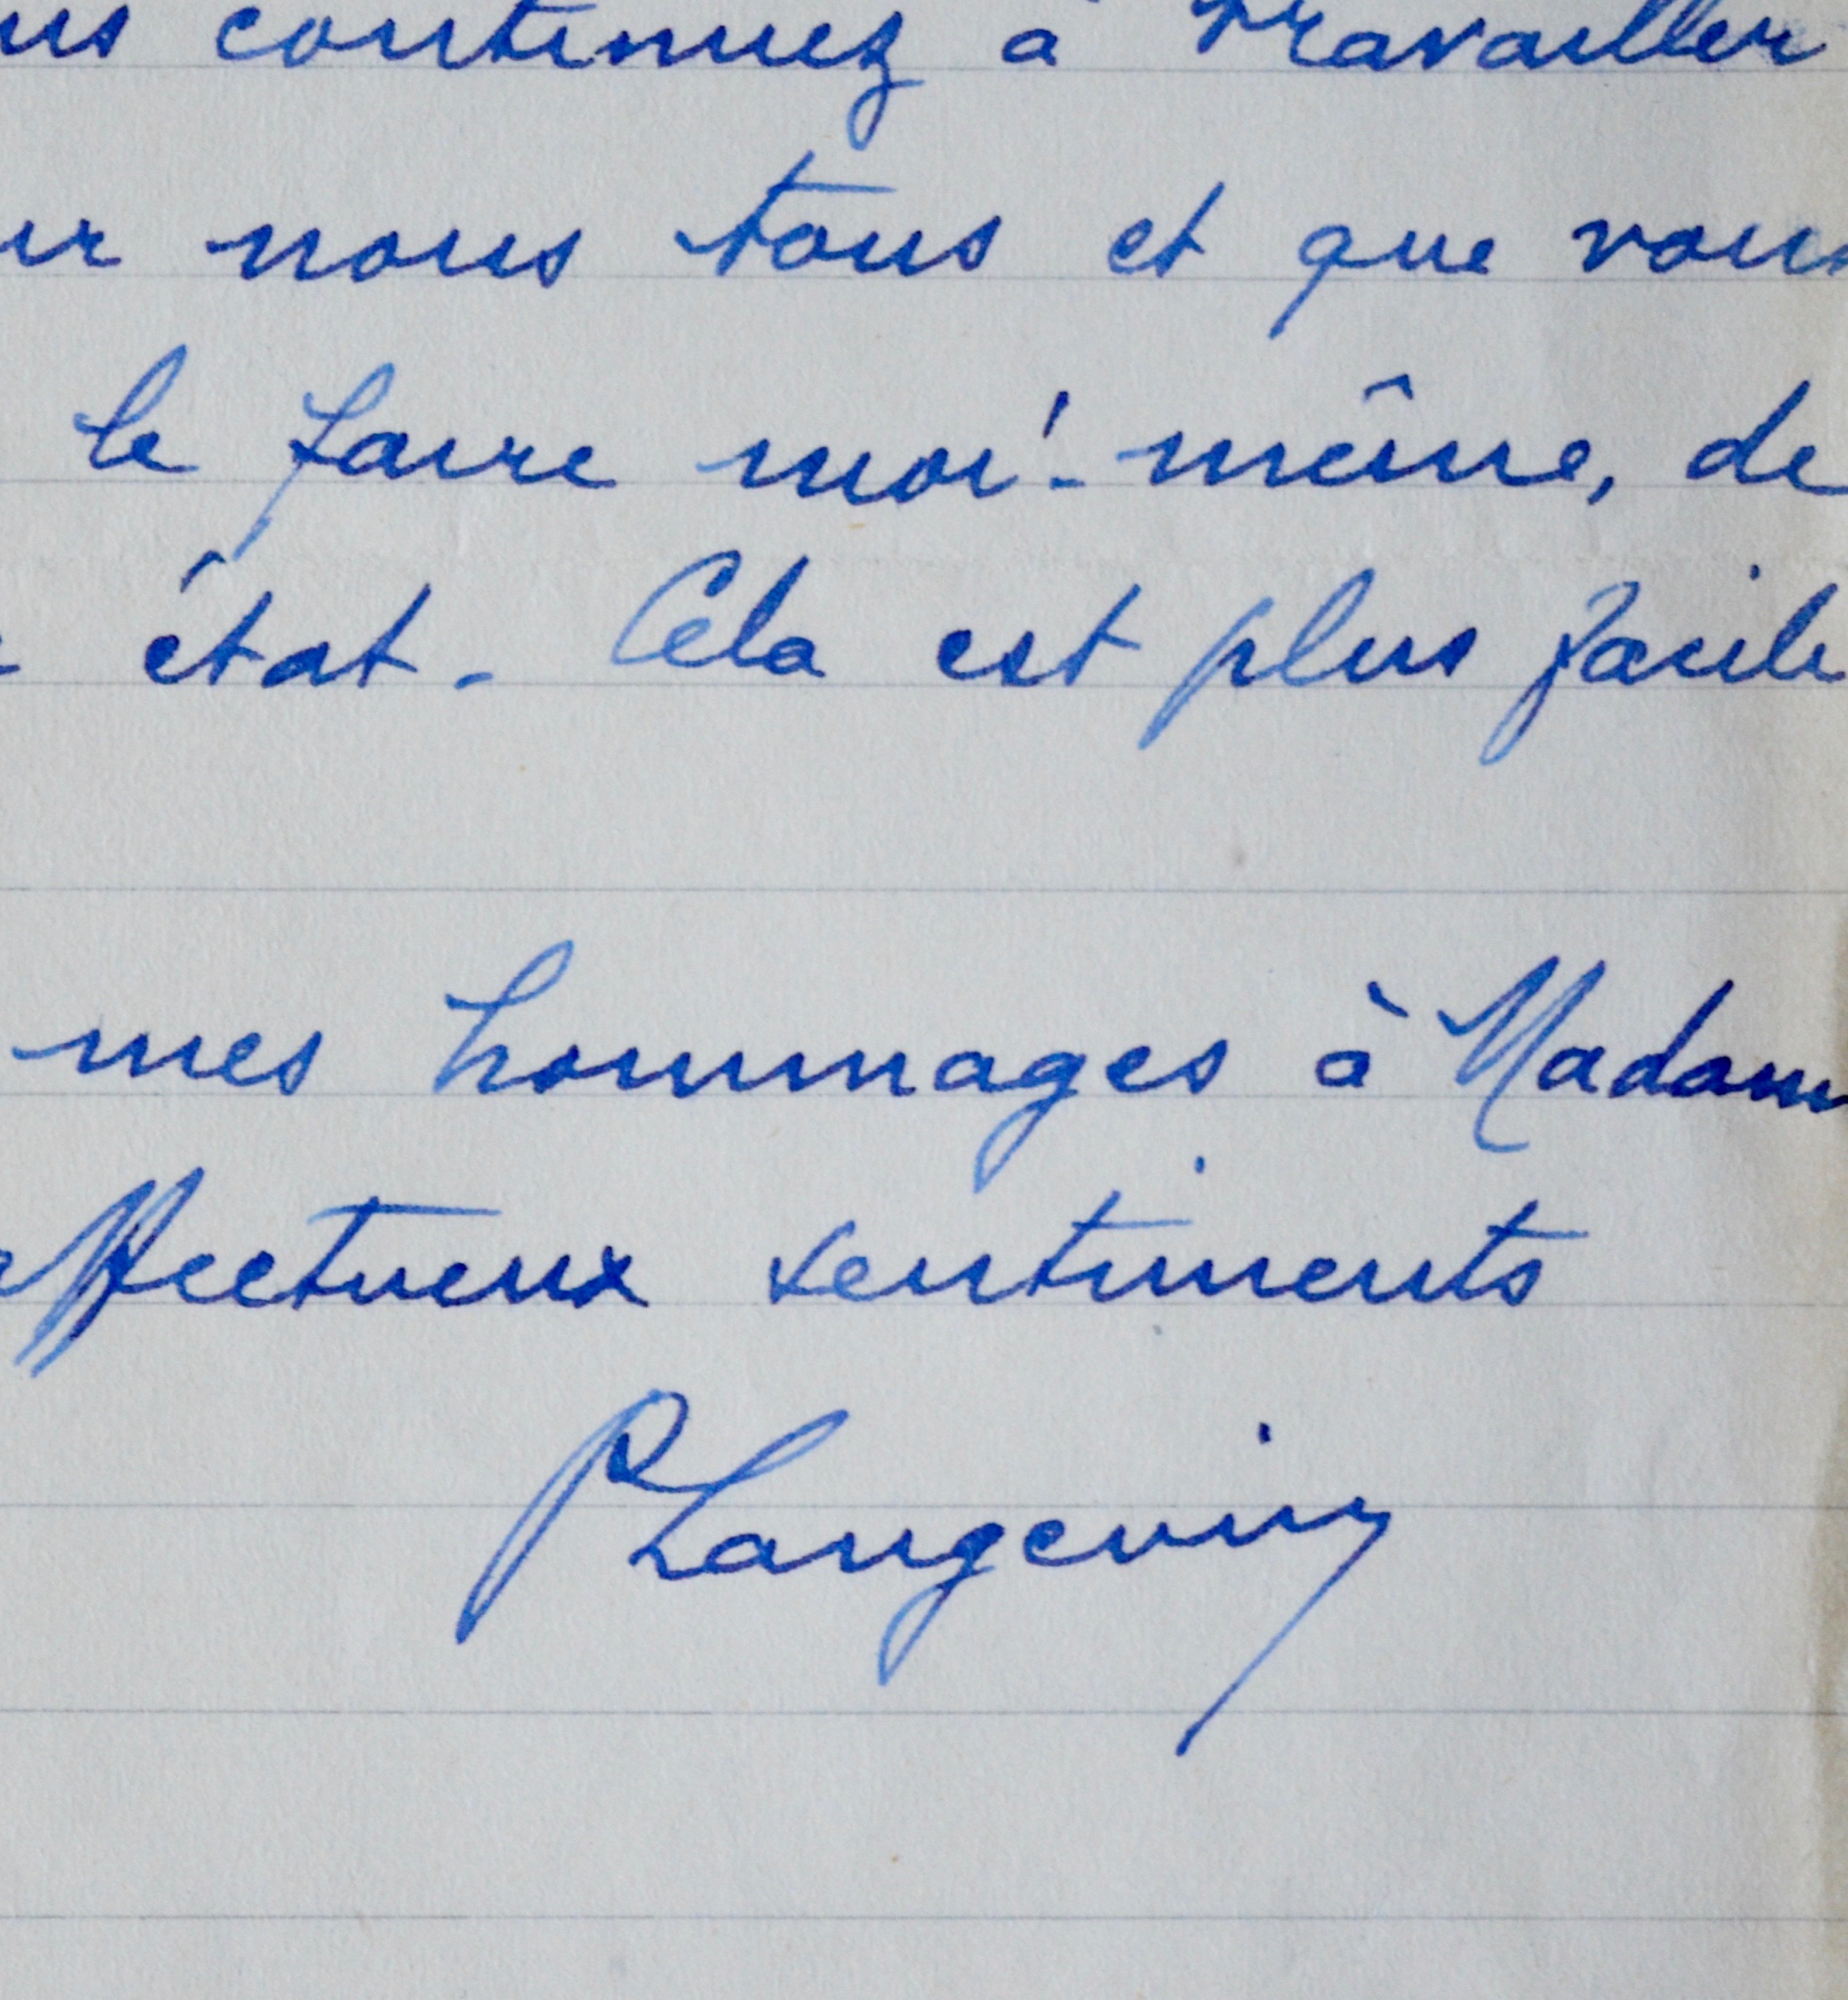 us continuez à travailler
ur nous tous et que vous
le faire moi-même, de
état. Cela est plus facile
mes hommages à Madam
affectueux sentiments
PLangevin